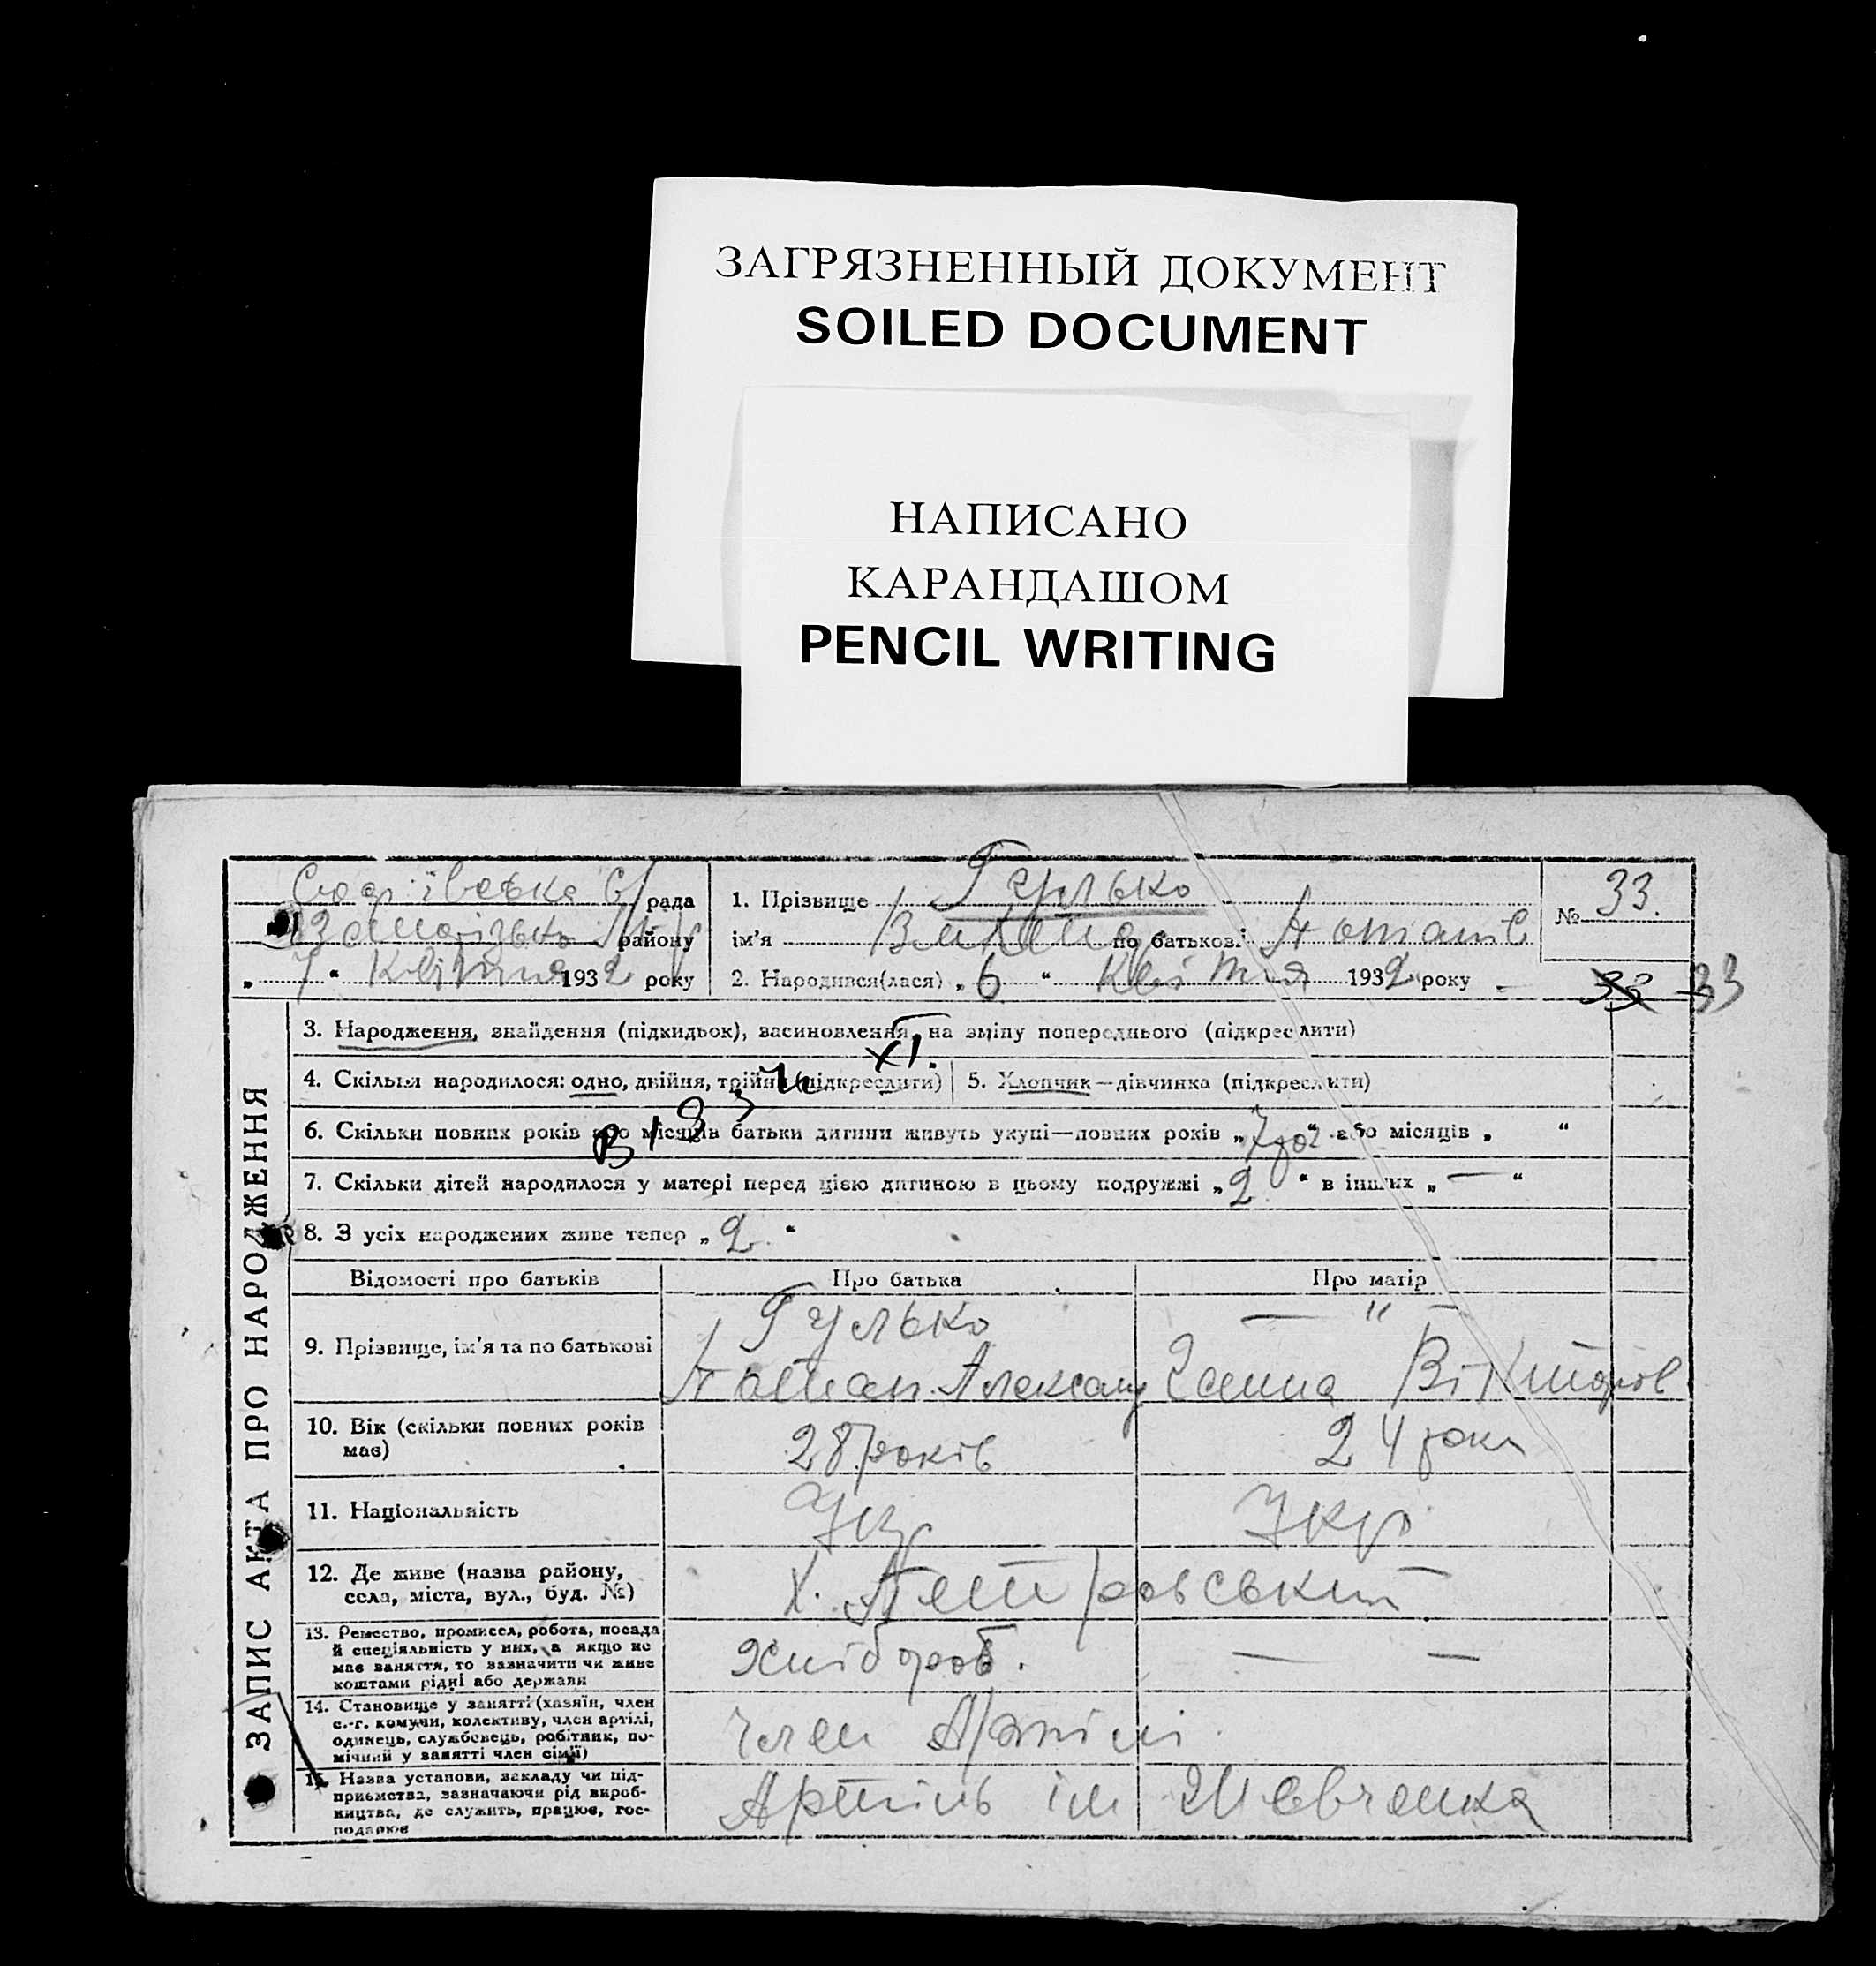 ЗАГРЯЗНЕННЫЙ ДОКУМЕНТ
SOILED DOCUMENT
НАПИСАНО
КАРАНДАШОМ
PENCIL WRITING
рада
району
„ 7 “ Квітня 1932 року
1. Прізвище Гулько
ім'я по батькові
2. Народився(лася) „ 6 “ Квітня 1932 року
№ 33.
33 33
ЗАПИС АКТА ПРО НАРОДЖЕННЯ
3. Народження, знайдення (підкидьок), васиновлення, на зміну попереднього (підкреслити)
4. Скільки народилося: одно, двійня, трійня (підкреслити)
5. Хлопчик—дівчинка (підкреслити)
6. Скільки повних років або місяців батьки дитини живуть укупі—повних років „ 7 “ або місяців „ “
7. Скільки дітей народилося у матері перед цією дитиною в цьому подружжі „ 2 “ в інших „ — “
8. З усіх народжених живе тепер „ 2. “
Відомості про батьків
Про батька
Про матір
9. Прізвище, ім'я та по батькові
Гулько
— " —
10. Вік (скільки повних років
має)
28 років
24 роки
11. Національність
Укр
Укр
12. Де живе (назва району,
села, міста, вул., буд. №)
х. Петровський
13. Ремество, промисел, робота, посада
й спеціяльність у них, а якщо не
має заняття, то зазначити чи живе
коштами рідні або держави
Хлібороб.
— —
14. Становище у занятті (хазяїн, член
с.-г. комуни, колективу, член артілі,
одинець, службовець, робітник, по-
мічний у занятті член сім'ї)
член Артілі
15. Назва установи, закладу чи під-
приємства, зазначаючи рід вироб-
ництва, де служить, працює, гос-
подарює
Артіль ім Шевченка